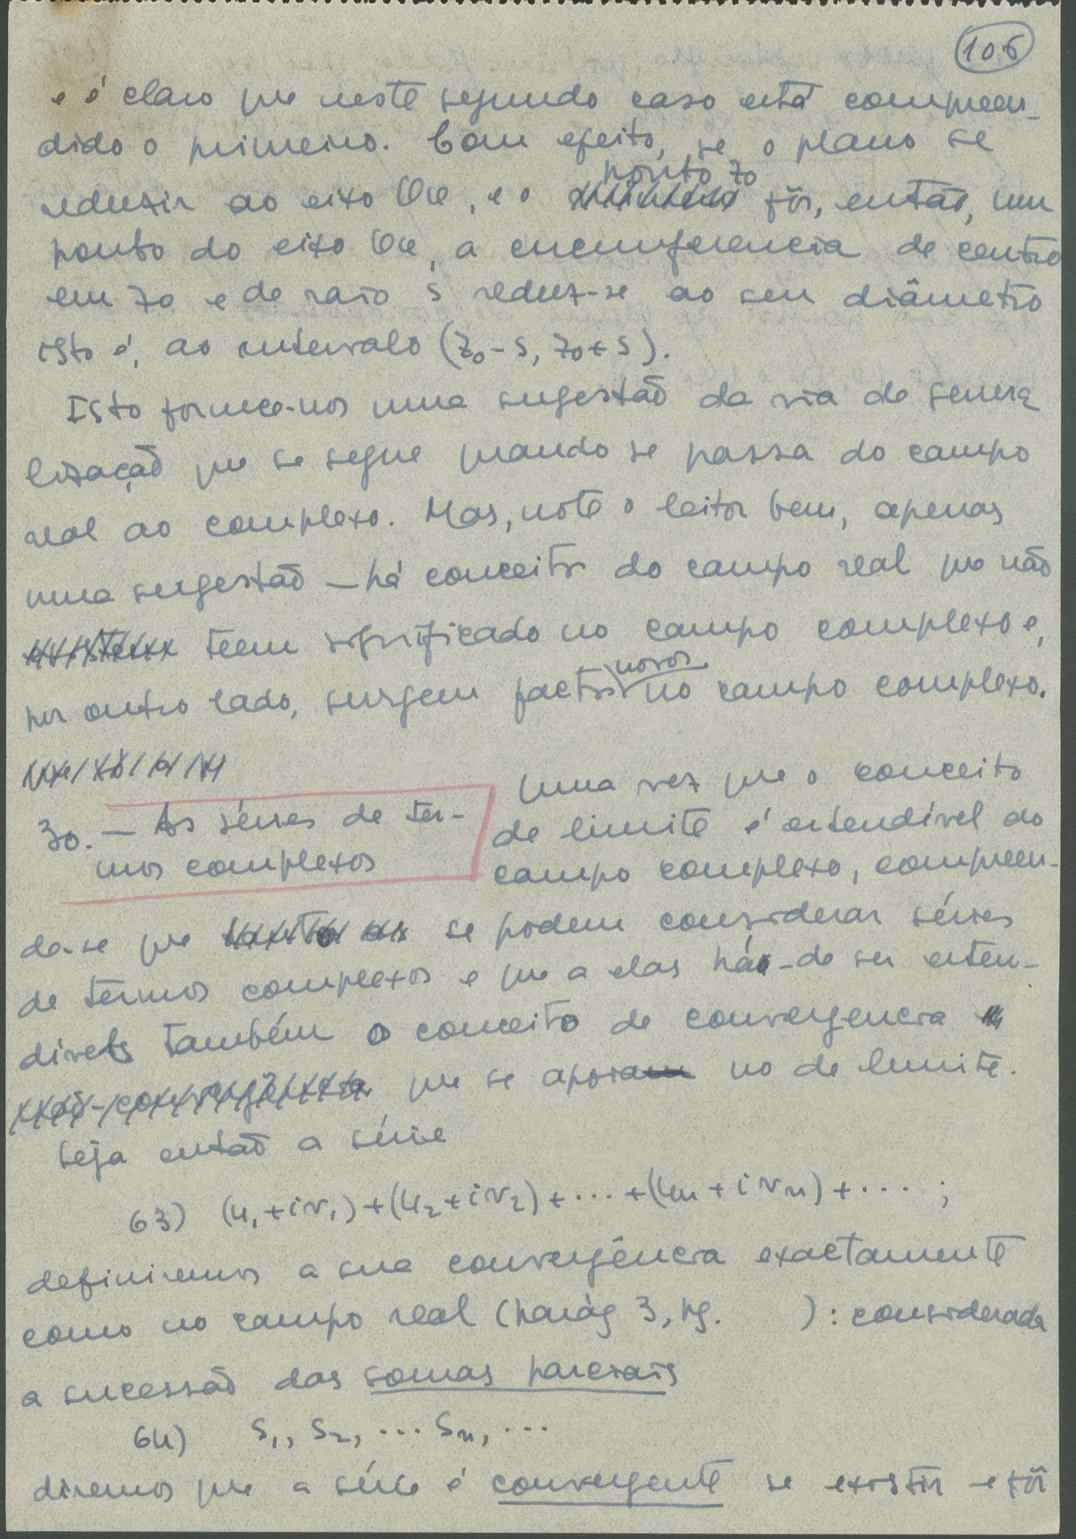 106
e é claro que neste segundo caso está compreen-
dido o primeiro. Com efeito, se o plano se
reduzir ao eixo Ox, e o ponto z0 fôr, então, um
ponto do eixo Ox, a circunferencia de centro
em z0 e de raio s reduz-se ao seu diâmetro
isto é, ao intervalo (z0-s, z0+s).
Isto fornece-nos uma sugestão da via de genera
lização que se segue quando se passa do campo
real ao complexo. Mas, note o leitor bem, apenas
uma sugestão — há conceitos do campo real que não
teem significado no campo complexo e,
por outro lado, surgem factos novos no campo complexo.
30. — As séries de ter-
mos complexos
Uma vez que o conceito
de limite é extendível ao
campo complexo, compreen-
de-se que se podem considerar séries
de termos complexos e que a elas há-de ser exten-
dível também o conceito de convergencia
que se apoia no de limite.
Seja então a série
63) (u1+iv1)+(u2+iv2)+...+(un+ivn)+... ;
definiremos a sua convergência exactamente
como no campo real (parág 3, pg. ): considerada
a sucessão das somas parciais
64) s1, s2, ... sn, ...
diremos que a série é convergente se existir e fôr